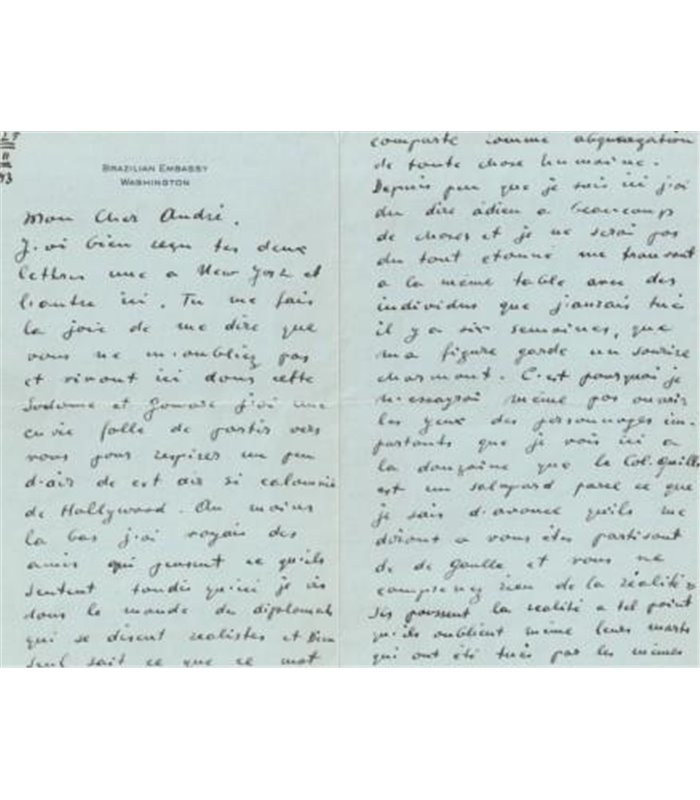 II
43
BRAZILIAN EMBASSY
WASHINGTON
Mon Cher André,
J'ai bien reçu tes deux
lettres une a New York et
l'autre ici. Tu me fais
la joie de me dire que
vous ne m'oubliez pas
et vivant ici dans cette
Sodome et Gomore j'ai une
envie folle de partir vers
vous pour respirer un peu
d'air de cet air si calomnié
de Hollywood. Au moins
la bas j'ai voyais des
amis qui pensent ce qu'ils
sentent tandis qu'ici je vis
dans le monde du diplomate
qui se disent realistes et Dieu
seul sait ce que ce mot
comporte comme
de toute chose humaine.
Depuis peu que je suis ici j'ai
du dire adieu a beaucoup
de choses et je ne serai pas
du tout etonné me trouvant
a la même table avec des
individus que j'aurais tué
il y a six semaines, que
ma figure garde un sourire
charmant. C'est pourquoi je
n'essayrai même pas ouvrir
les yeux des personnages im-
portants que je vois ici a
la douzaine que le Col.
est un salopard parce ce que
je sais d'avance qu'ils me
diront a vous êtes partisant
de de Gaulle et vous ne
comprenez rien de la réalité
Ils poussent la realité a tel point
qu'ils oublient même leurs morts
qui ont été tués par les mêmes